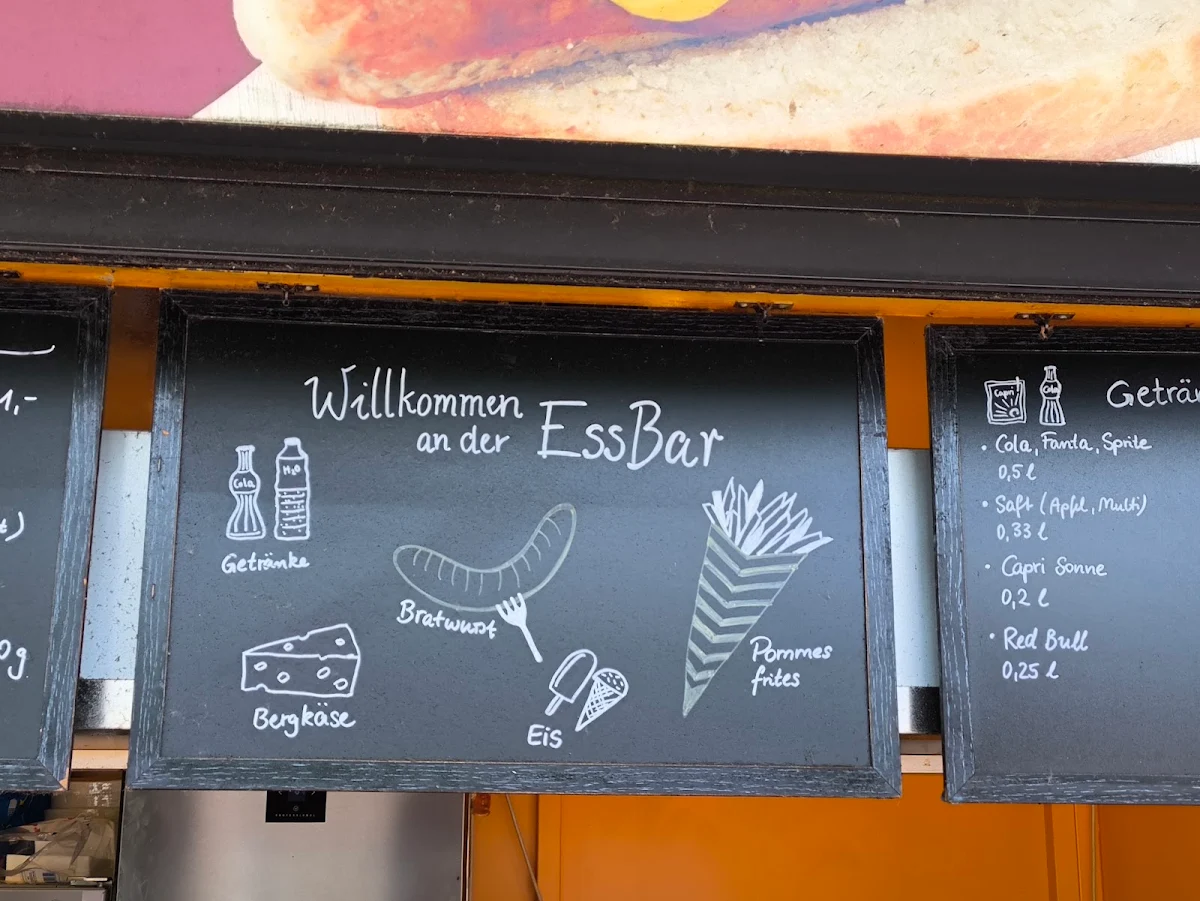 1,-
0g
Willkommen
an der EssBar
Cola
H₂O
Getränke
Bratwurst
Pommes
frites
Bergkäse
Eis
PROFESSIONAL
Capri
Cola
• Cola, Fanta, Sprite
0,5 l
• Saft (Apfel, Multi)
0,33 l
• Capri Sonne
0,2 l
• Red Bull
0,25 l